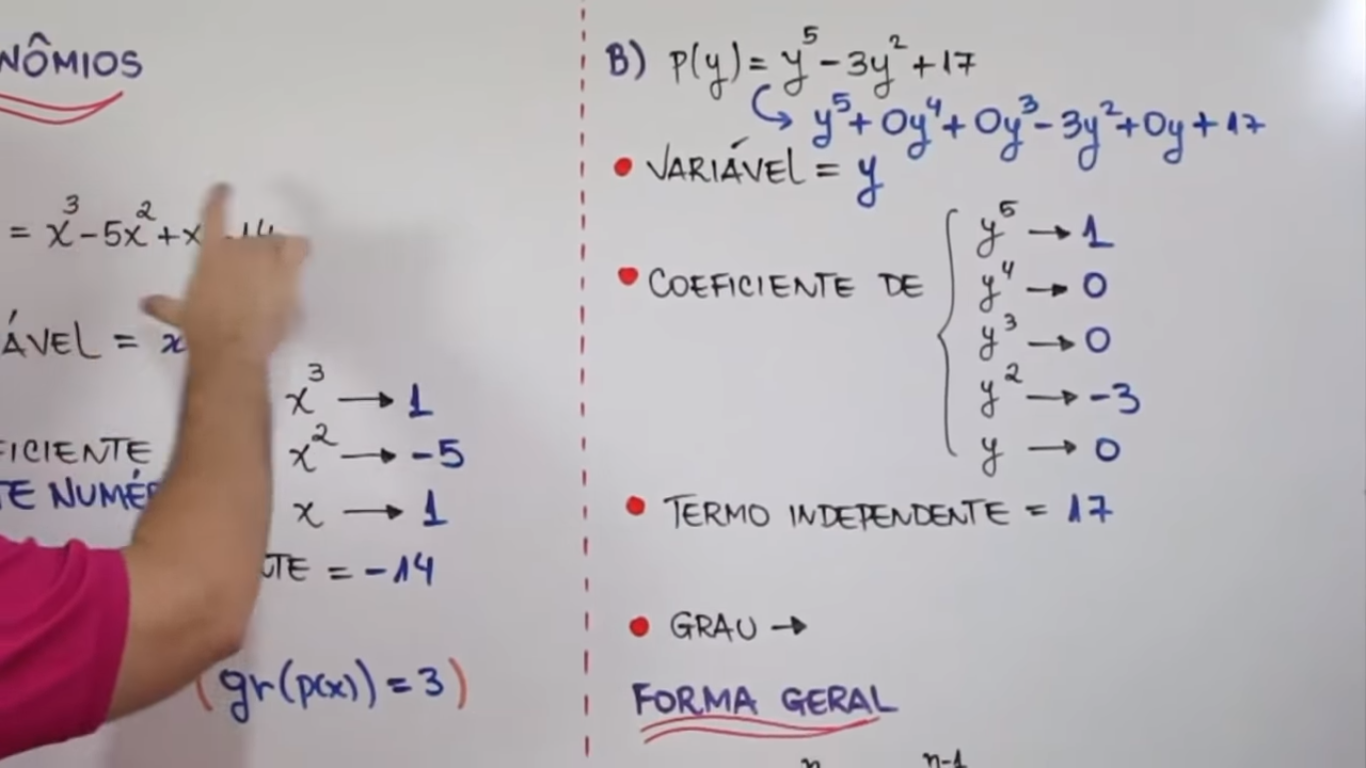 NÔMIOS
= x³ - 5x² + x - 14
ÁVEL = x
x³ → 1
FICIENTE x² → -5
TE NUMÉ
x → 1
TE = -14
(gr(p(x)) = 3)
B) P(y) = y⁵ - 3y² + 17
y⁵ + 0y⁴ + 0y³ - 3y² + 0y + 17
• VARIÁVEL = y
• COEFICIENTE DE {
y⁵ → 1
y⁴ → 0
y³ → 0
y² → -3
y → 0
• TERMO INDEPENDENTE = 17
• GRAU →
FORMA GERAL
n n-1